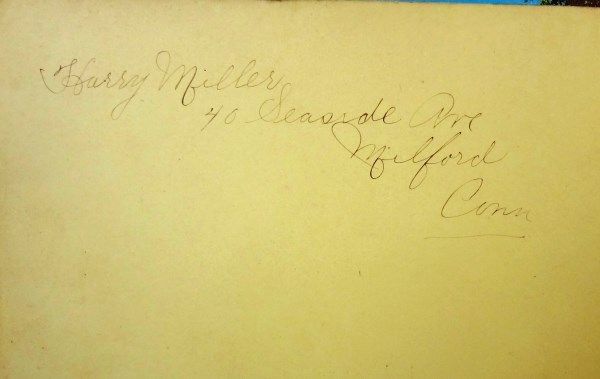 Harry Miller
40 Seaside Ave
Milford
Conn